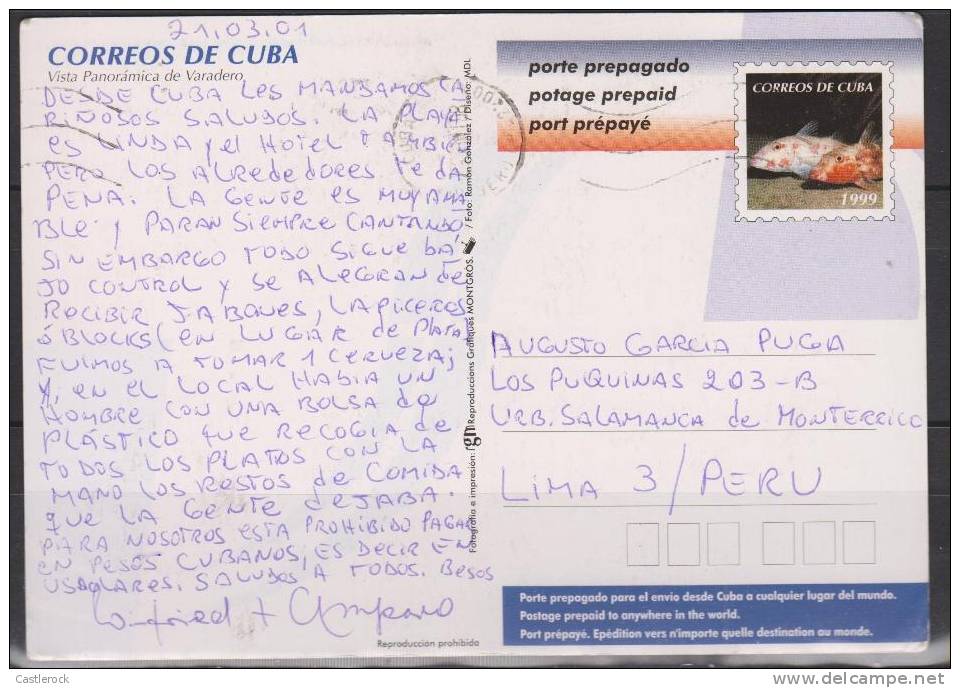 21.03.01
CORREOS DE CUBA
Vista Panorámica de Varadero
DESDE CUBA LES MANDAMOS CA
RIÑOSOS SALUDOS. LA PLAYA
ES LINDA y el HOTEL TAMBIÉ
PERO LOS ALREDEDORES TE DA
PENA. LA GENTE ES MUY AMA
BLE y PARAN SIEMPRE CANTANDO
SIN EMBARGO TODO SIGUE BA
JO CONTROL y SE ALEGRAN DE
RECIBIR JABONES, LAPICEROS
ó BLOCKS (EN LUGAR DE PLATA)
FUIMOS A TOMAR 1 CERVEZA;
y, EN EL LOCAL HABIA UN
HOMBRE CON UNA BOLSA DE
PLÁSTICO QUE RECOGIA DE
TODOS LOS PLATOS CON LA
MANO LOS RESTOS DE COMIDA
QUE LA GENTE DEJABA.
PARA NOSOTROS ESTA PROHIBIDO PAGAR
EN PESOS CUBANOS, ES DECIR EN
USDOLARES. SALUDOS A TODOS. BESOS
Winfried + Amparo
Reproducción prohibida
Fotografía e impresión: gm Reproduccions Gràfiques MONTGRÓS. / Foto: Ramón González / Diseño: MDL
porte prepagado
potage prepaid
port prépayé
CORREOS DE CUBA
1999
AUGUSTO GARCIA PUGA
LOS PUQUINAS 203-B
URB. SALAMANCA de MONTERRICO
LIMA 3 / PERU
Porte prepagado para el envío desde Cuba a cualquier lugar del mundo.
Postage prepaid to anywhere in the world.
Port prépayé. Epédition vers n'importe quelle destination au monde.
Castlerock
www.delcampe.net